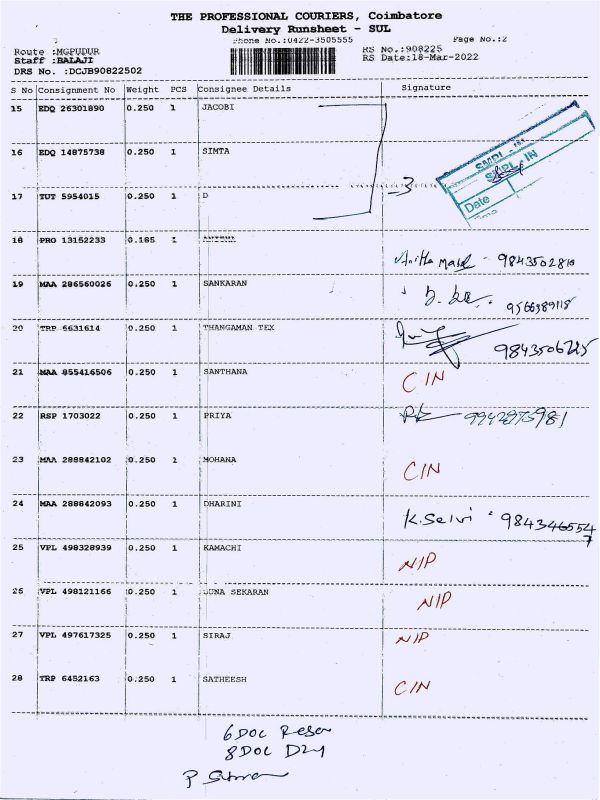 THE PROFESSIONAL COURIERS, Coimbatore
Delivery Runsheet - SUL
Phone No.:0422-3505555 Page No.:2
Route :MGPUDUR RS No.:908225
Staff :BALAJI RS Date:18-Mar-2022
DRS No. :DCJB90822502
S No Consignment No Weight PCS Consignee Details Signature
15 EDQ 26301890 0.250 1 JACOBI
16 EDQ 14875738 0.250 1 SIMTA
SMPL
IN
17 TUT 5954015 0.250 1 D =3
Date
Time
18 PRO 13152233 0.185 1
9843502810
19 MAA 286560026 0.250 1 SANKARAN
9566389118
20 TRP 6631614 0.250 1 THANGAMAN TEX
9843506225
21 MAA 855416506 0.250 1 SANTHANA CIN
22 RSP 1703022 0.250 1 PRIYA
23 MAA 288842102 0.250 1 MOHANA CIN
24 MAA 288642093 0.250 1 DHARINI K. Selvi
25 VPL 498328939 0.250 1 KAMACHI NIP
26 VPL 498121166 0.250 1 GUNA SEKARAN NIP
27 VPL 497617325 0.250 1 SIRAJ NIP
28 TRP 6452163 0.250 1 SATHEESH CIN
6 DOC
8 DOC